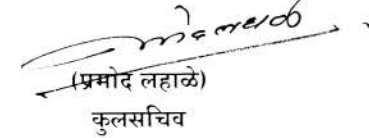 (प्रमोद लहाळे)
कुलसचिव